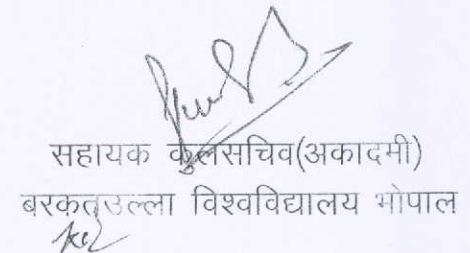 सहायक कुलसचिव(अकादमी)
बरकतउल्ला विश्वविद्यालय भोपाल